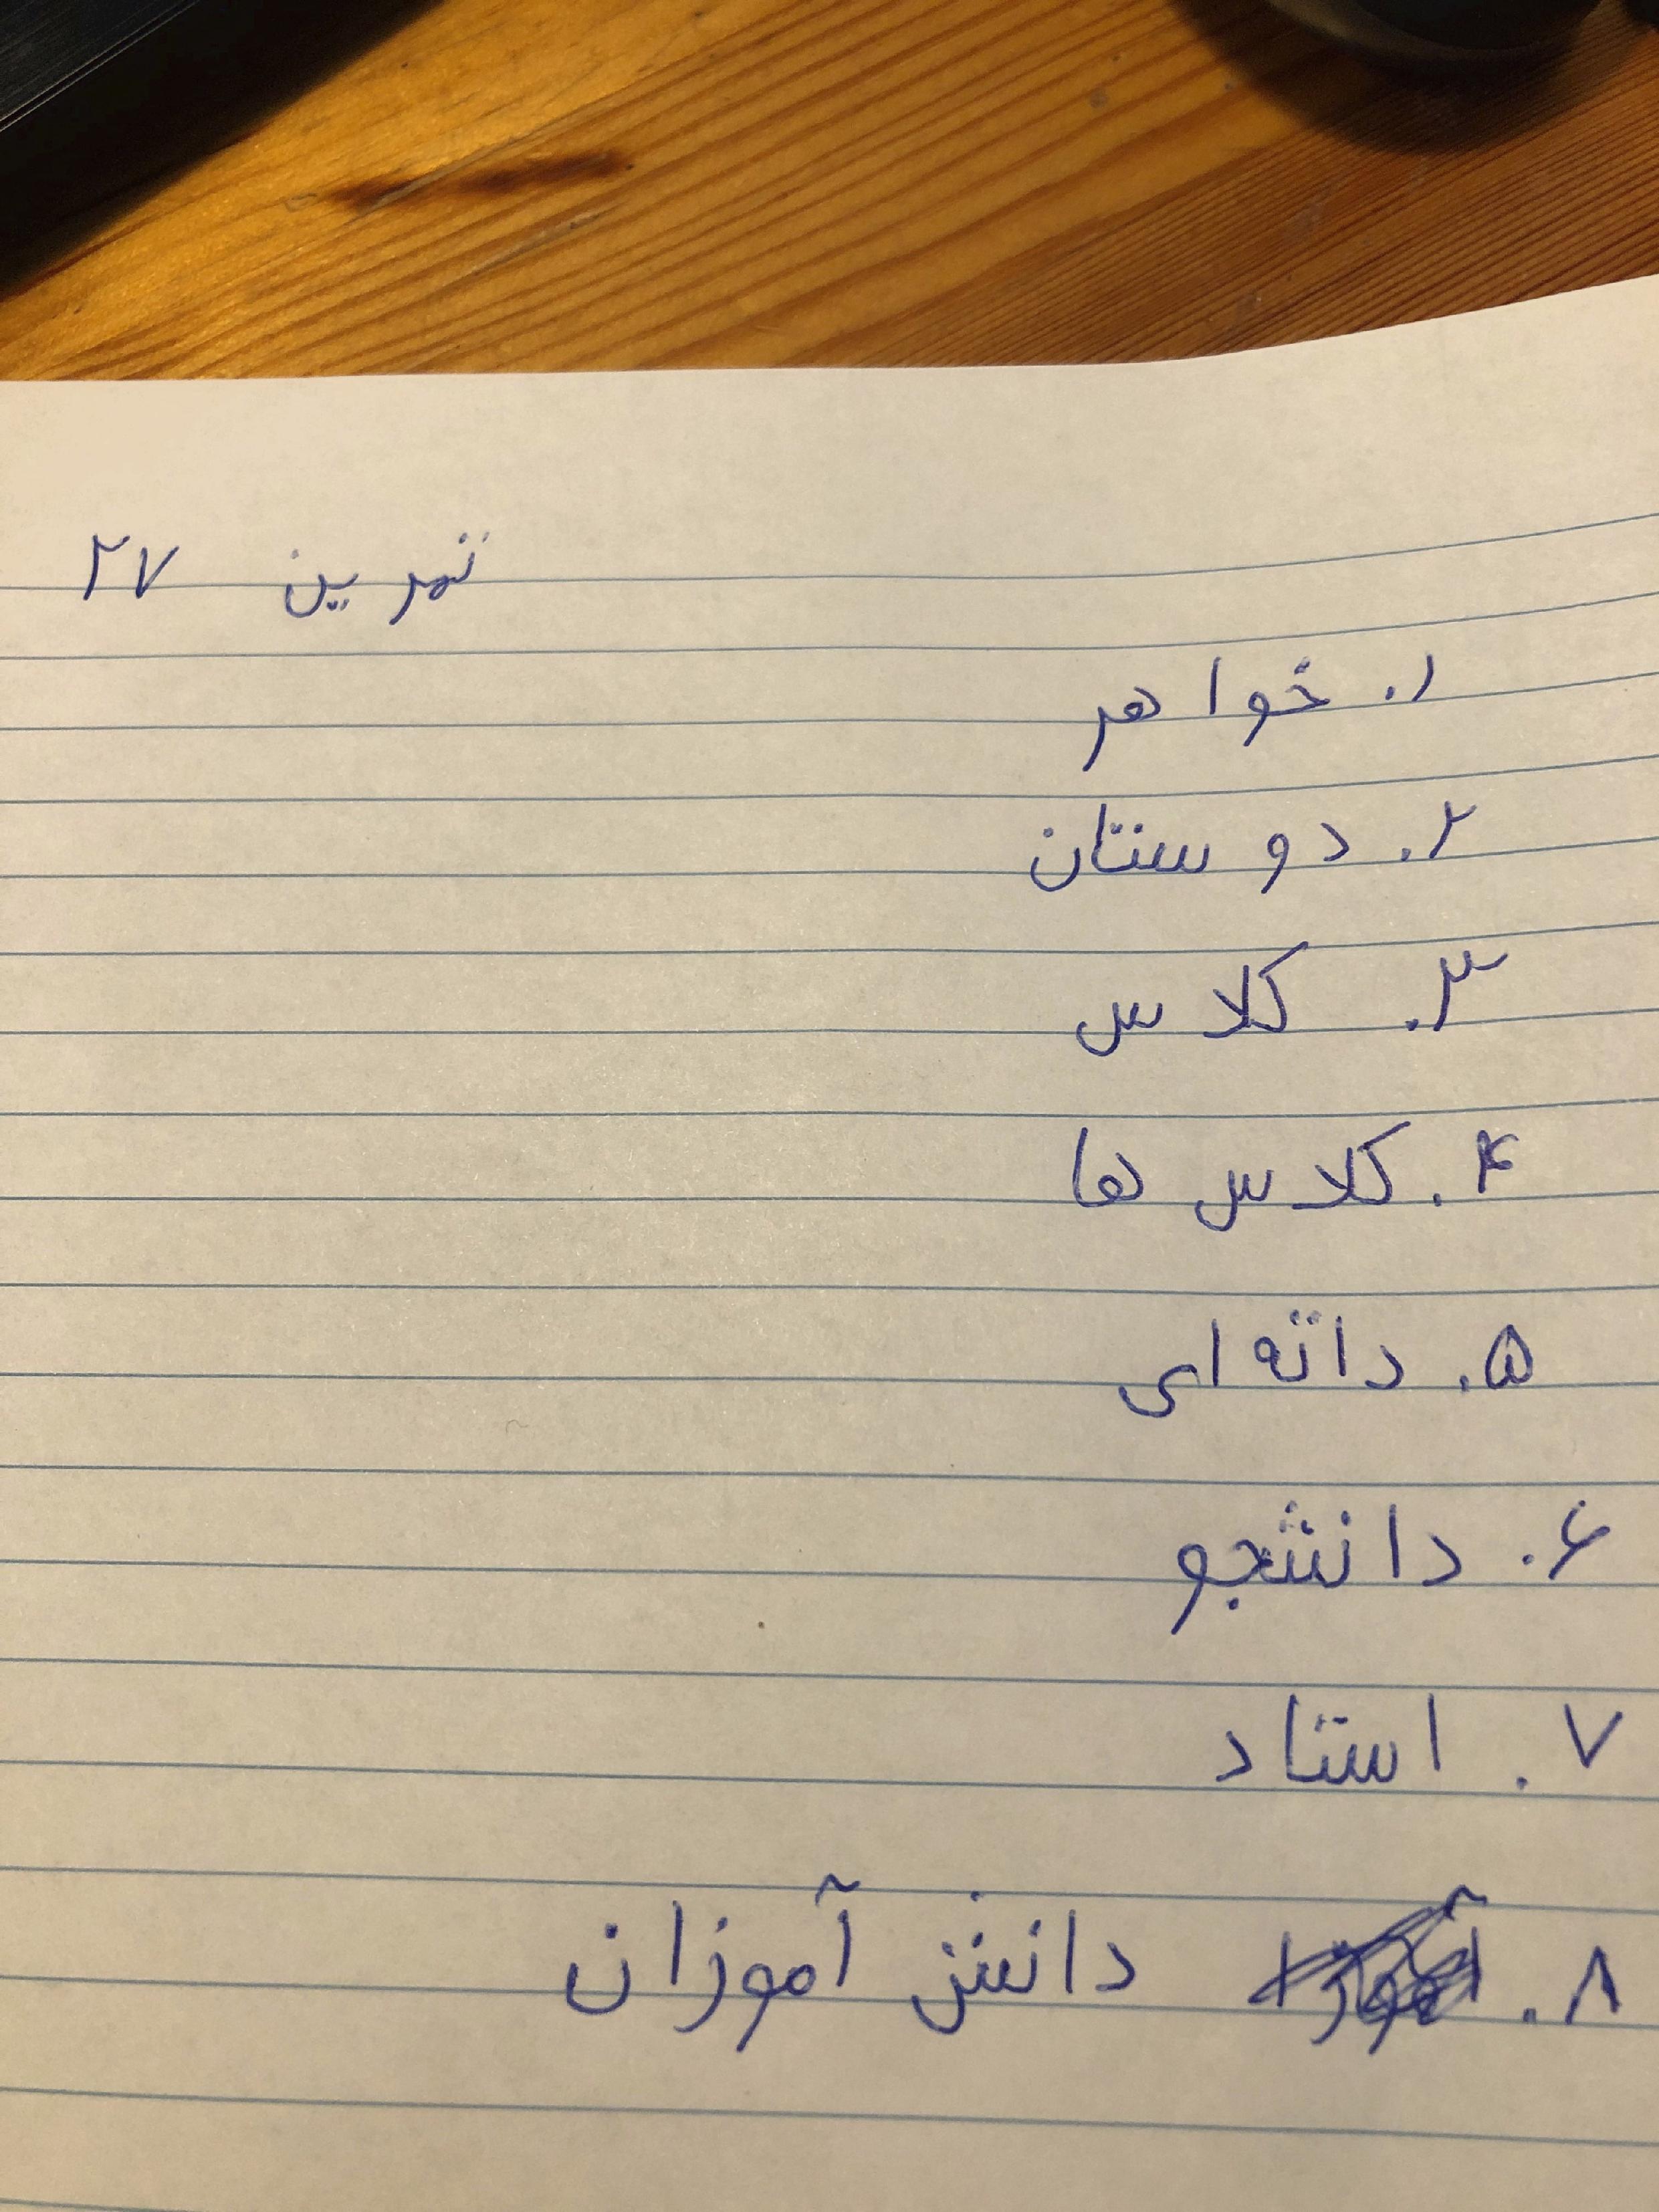 تمرین ۲۷
۱. خواهر
۲. دوستان
۳. کلاس
۴. کلاس ها
۵. داته ای
۶. دانشجو
۷. استاد
۸. دانش آموزان